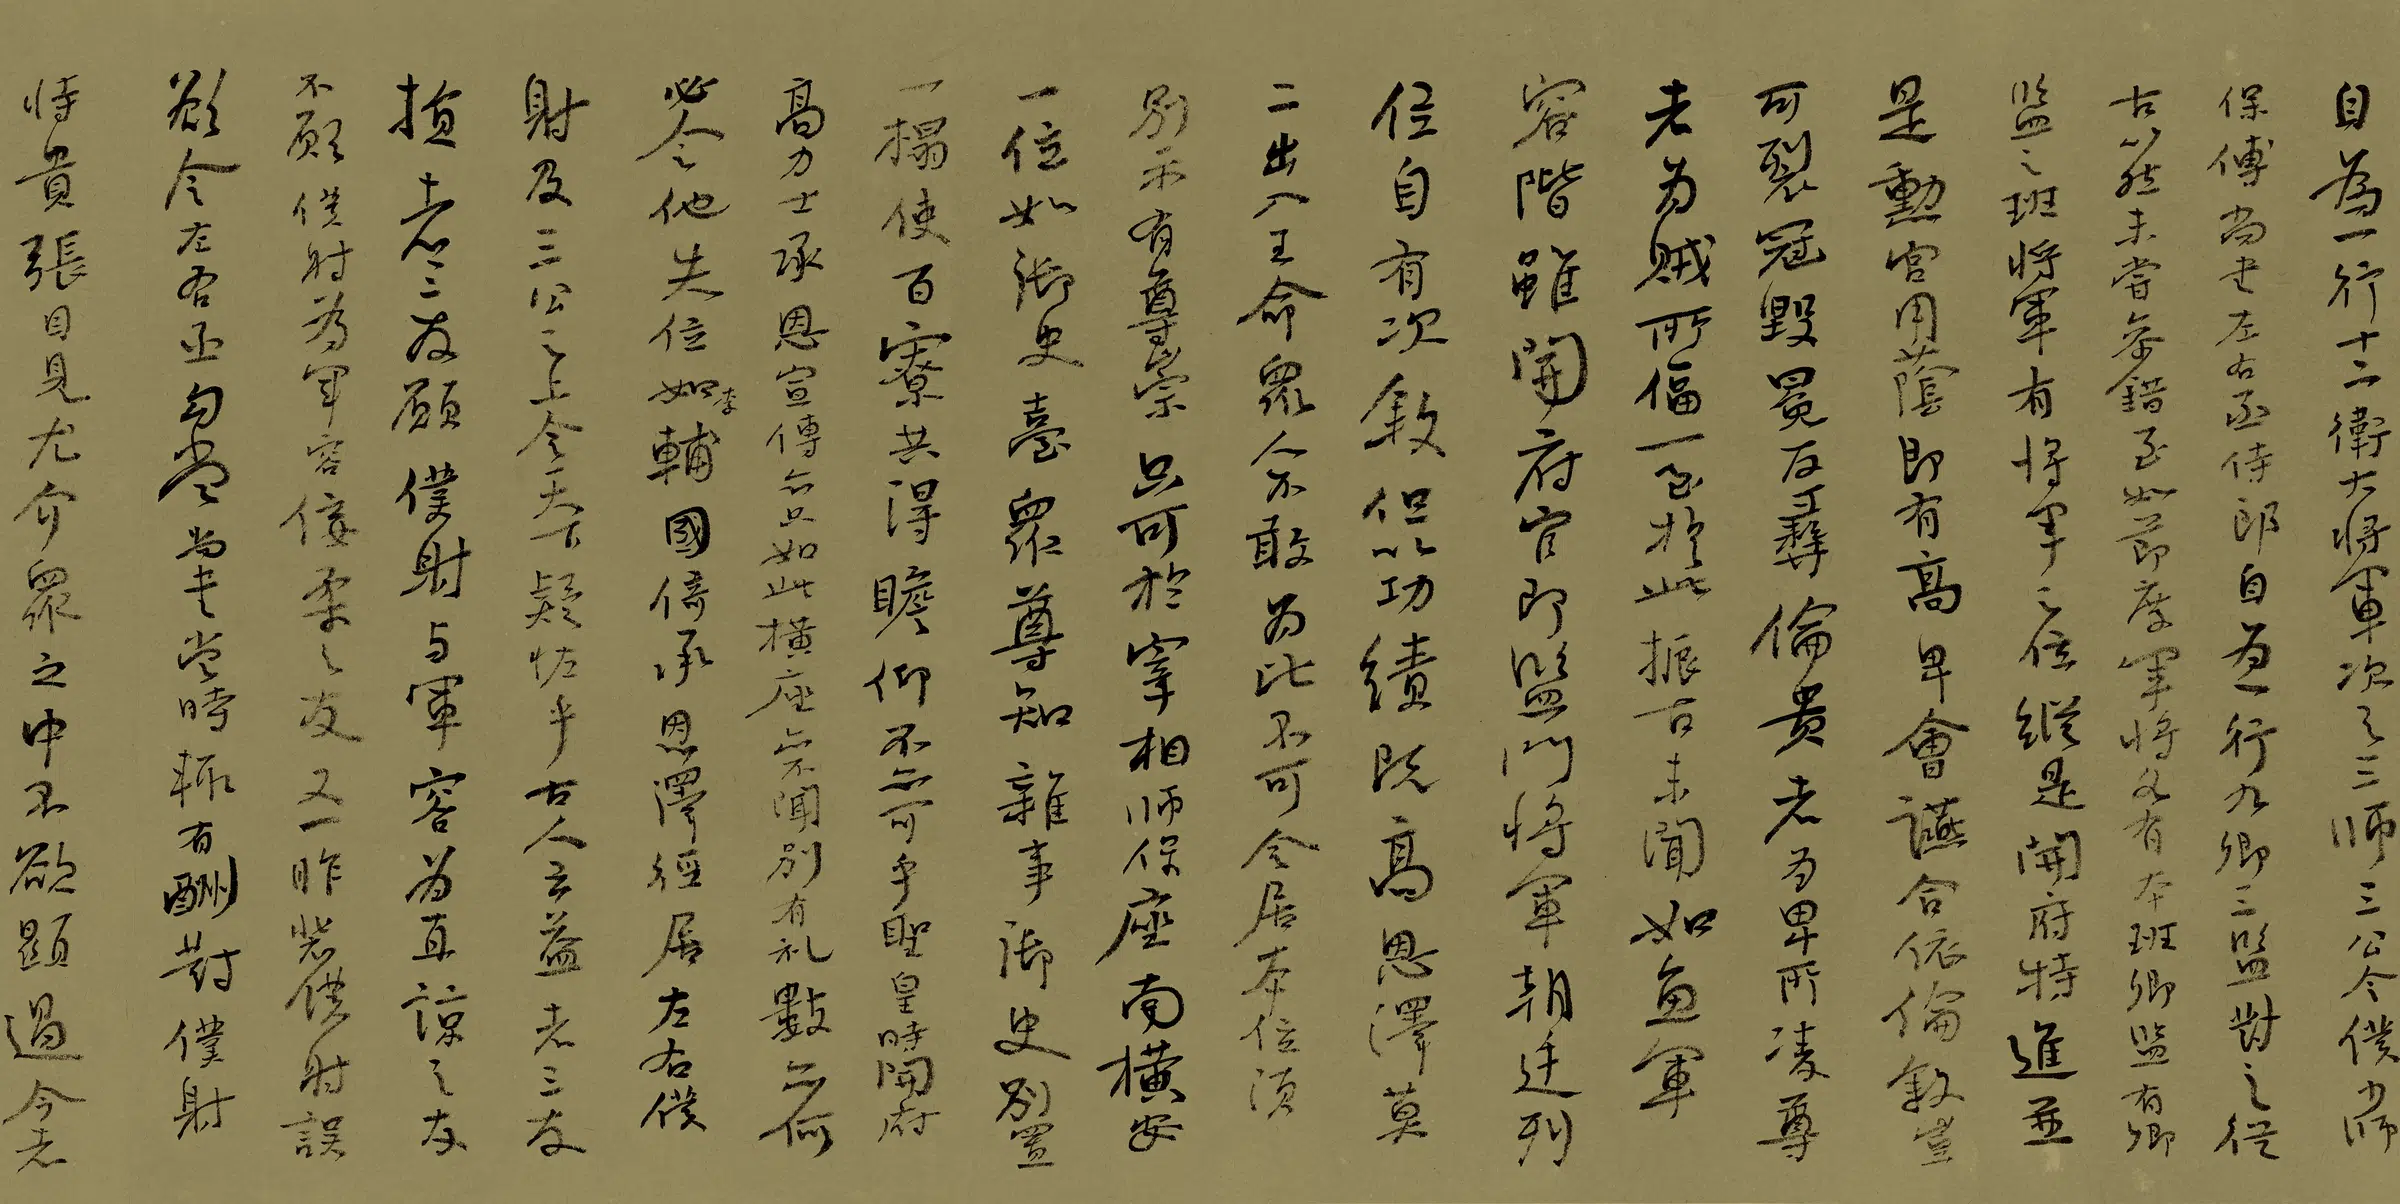 自為一行十二衛大將軍次之三師三公令僕少師
保傅尚書左右丞侍郎自為一行九卿三監對之從
古以然未嘗參錯至如節度軍將各有本班卿監有卿
監之班將軍有將軍之位縱是開府特進並
是勳官用蔭即有高卑會讌合依倫敘豈
可裂冠毀冕反彝倫貴者為卑所凌尊
者為賊所偪一至於此振古未聞如魚軍
容階雖開府官即監門將軍朝廷列
位自有次敘但以功績既高恩澤莫
二出入王命眾人不敢為比不可令居本位須
別示有尊崇只可於宰相師保座南橫安
一位如御史臺眾尊知雜事御史別置
一榻使百寮共得瞻仰不亦可乎聖皇時開府
高力士承恩宣傳亦只如此橫座亦不聞別有礼數亦何
必令他失位如李輔國倚承恩澤徑居左右僕
射及三公之上令天下疑怪乎古人云益者三友
損者三友願僕射與軍容為直諒之友
不願僕射為軍容佞柔之友又一昨裴僕射誤
欲令左右丞勾當尚書當時輒有酬對僕射
恃貴張目見尤介眾之中不欲顯過今者